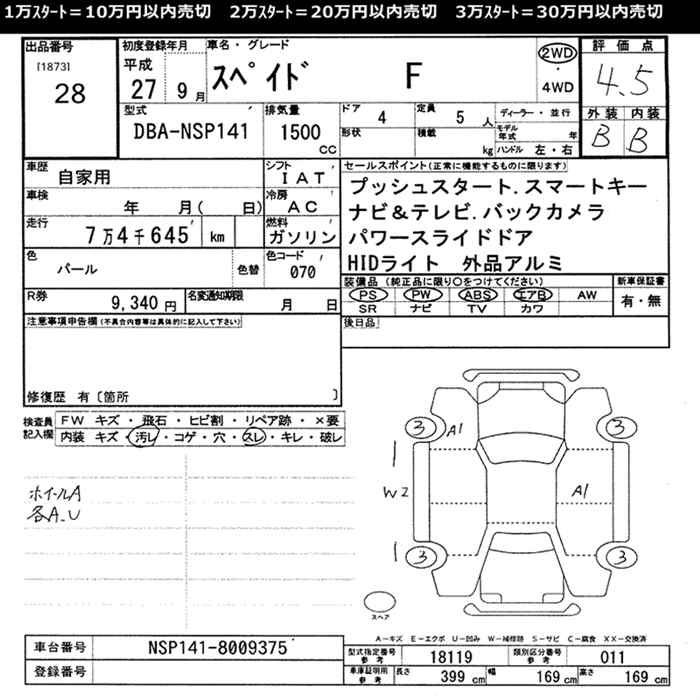 1万ｽﾀｰﾄ＝10万円以内売切　2万ｽﾀｰﾄ＝20万円以内売切　3万ｽﾀｰﾄ＝30万円以内売切
出品番号
[1873]
28
初度登録年月
平成
27 9月
車名・グレード
スペイド F
2WD
・
4WD
評価点
4.5
外装 内装
B B
型式
DBA-NSP141
排気量
1500
CC
ドア
4
形状
定員
5 人
積載
kg
ディーラー・並行
モデル年式 年
ハンドル 左・右
車歴
自家用
シフト
IAT
車検
年 月( 日)
冷房
AC
走行
7万4千645 km
燃料
ガソリン
色
パール
色替
色コード
070
R券
9,340 円
名変通知期限
月 日
セールスポイント(正常に機能するものに限ります)
プッシュスタート.スマートキー
ナビ＆テレビ.バックカメラ
パワースライドドア
HIDライト 外品アルミ
装備品 (純正品に限り○をつけてください)
PS PW ABS エアB AW
SR ナビ TV カワ
新車保証書
有・無
後日品
注意事項申告欄 (不具合内容等は具体的に記入して下さい)
修復歴 有〔箇所 〕
検査員記入欄
FW キズ・飛石・ヒビ割・リペア跡・×要
内装 キズ・汚レ・コゲ・穴・スレ・キレ・破レ
ホイールA
各A.U
3 A1 3
W2 A1
3 3
スペア
A－キズ E－エクボ U－凹み W－補修跡 S－サビ C－腐食 XX－交換済
車台番号
NSP141-8009375
登録番号
型式指定番号 参考
18119
類別区分番号 参考
011
車庫証明用 参考
長さ 399 cm
幅 169 cm
高さ 169 cm